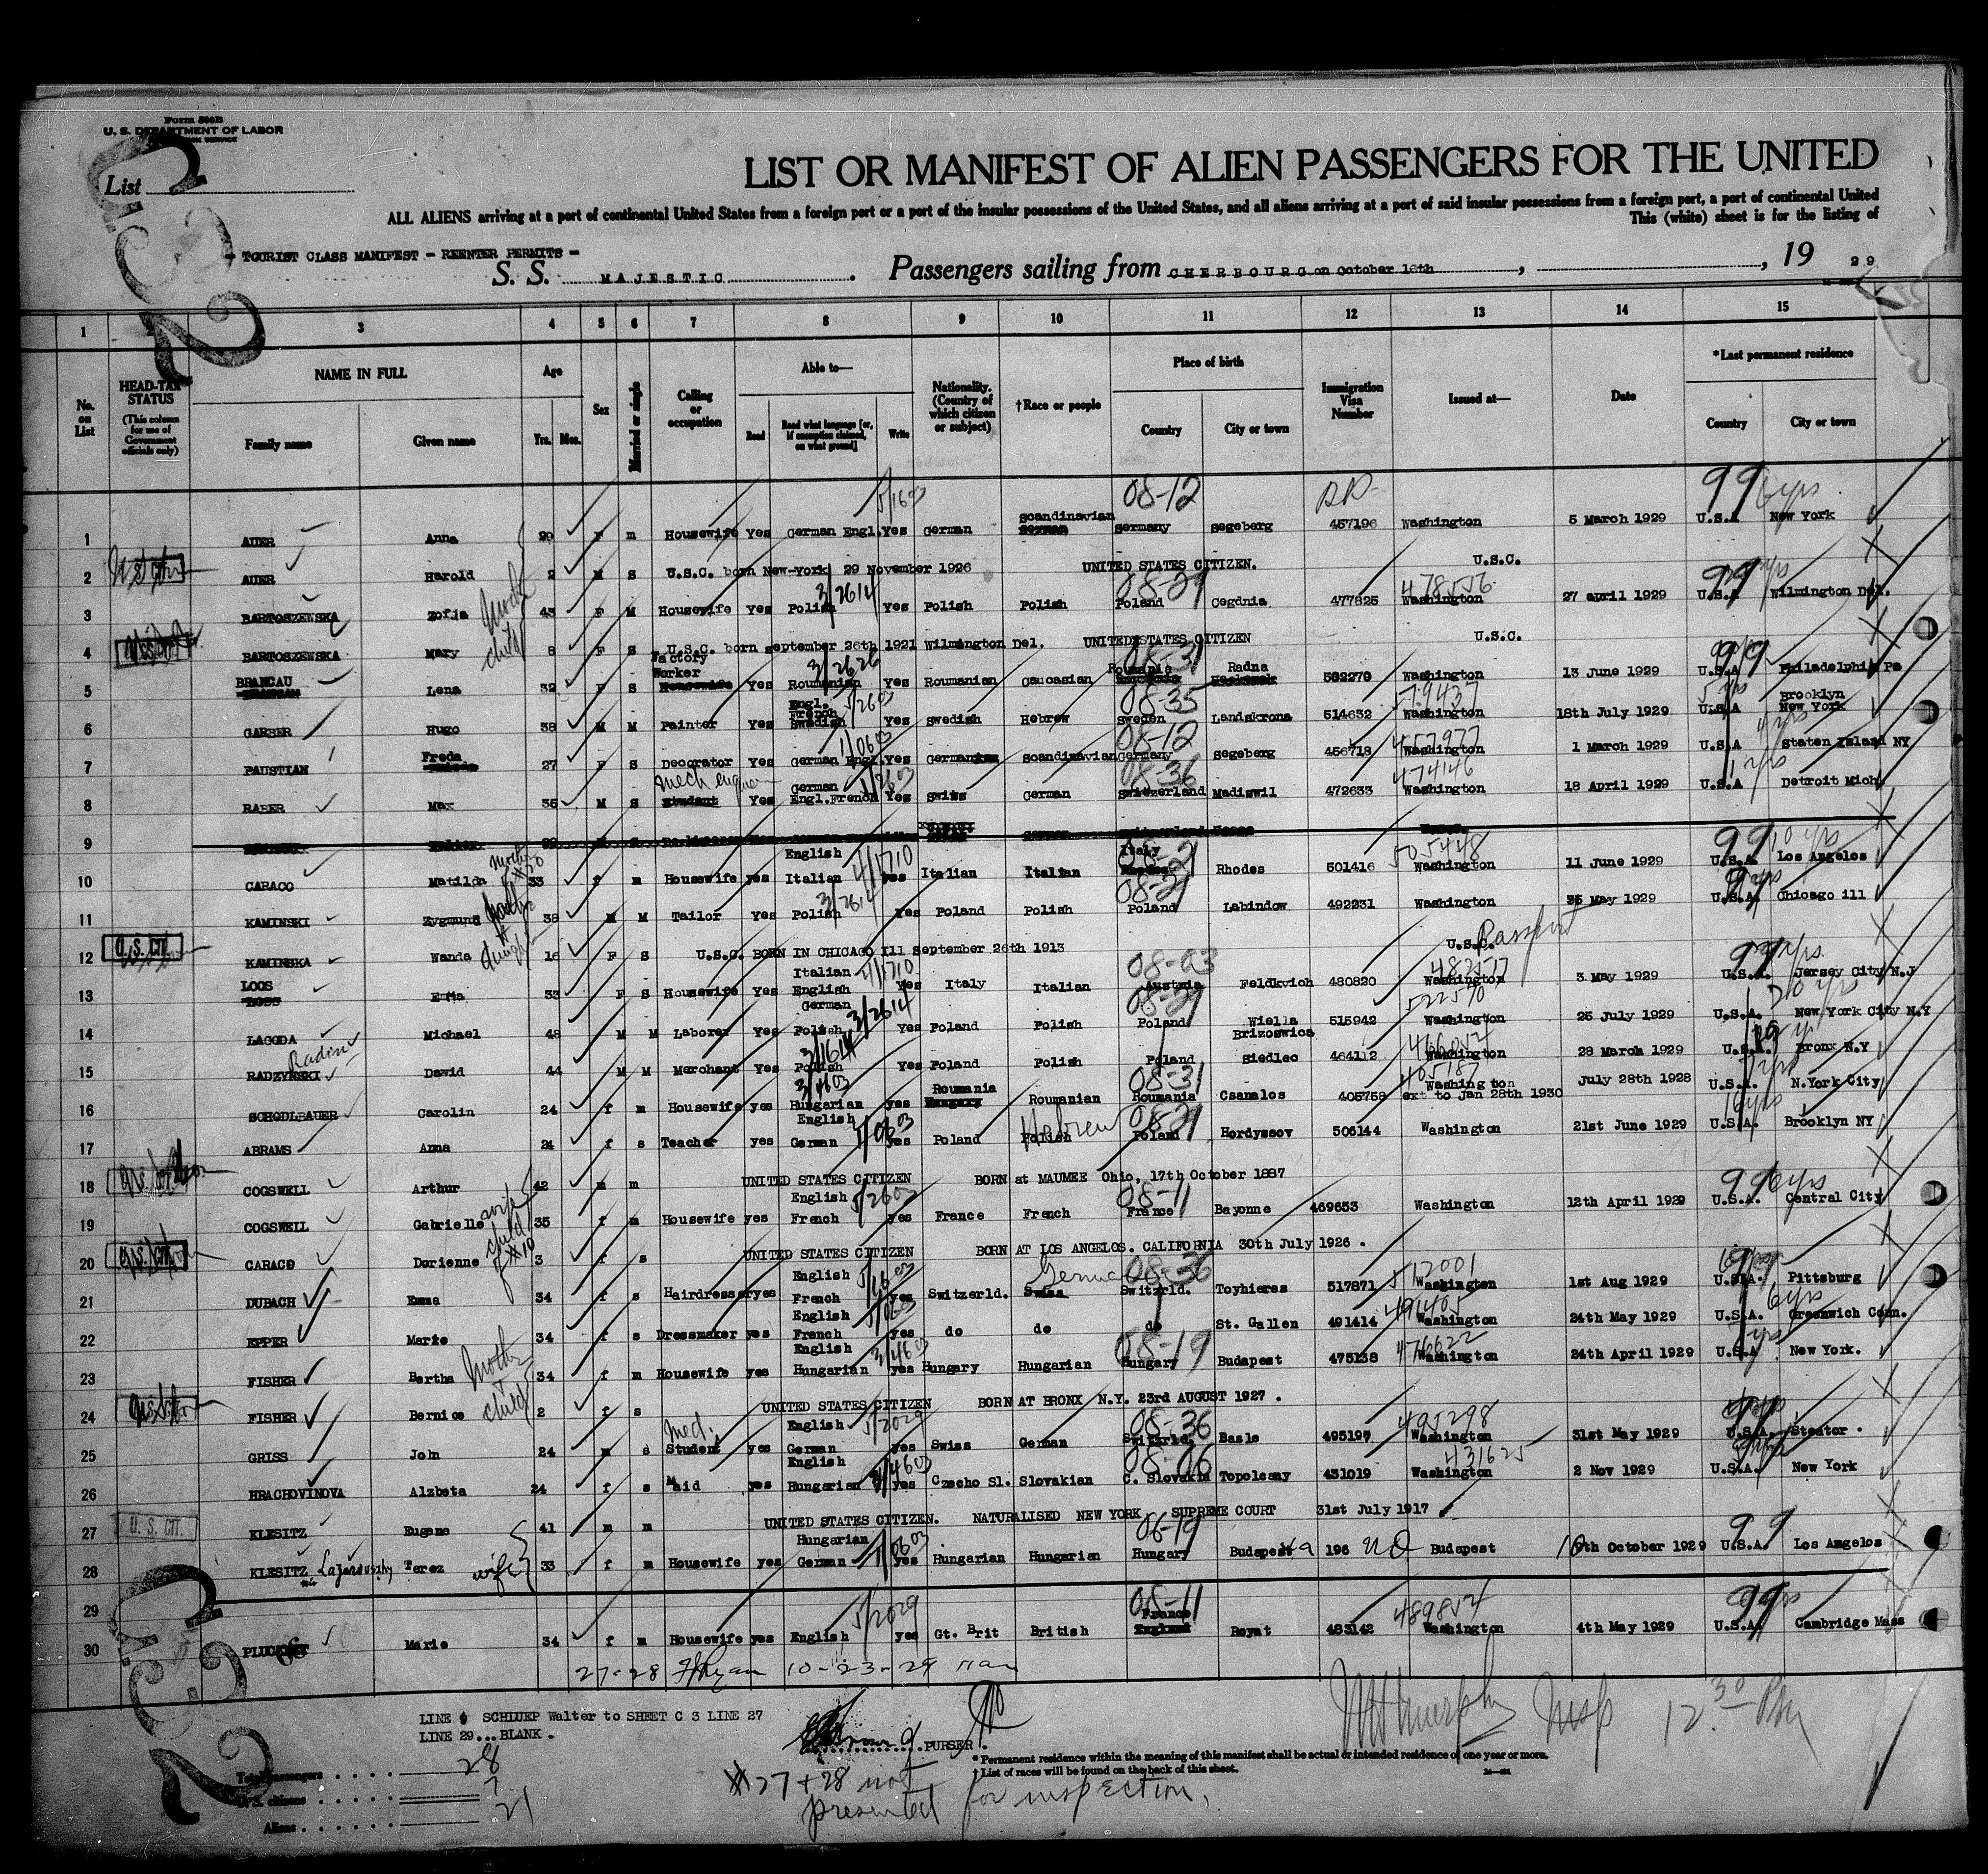 Form 500B
U. S. DEPARTMENT OF LABOR
List
LIST OR MANIFEST OF ALIEN PASSENGERS FOR THE UNITED
ALL ALIENS arriving at a port of continental United States from a foreign port or a port of the insular possessions of the United States, and all aliens arriving at a port of said insular possessions from a foreign port, a port of continental United
This (white) sheet is for the listing of
- TOURIST CLASS MANIFEST - REENTER PERMITS -
S. S. MAJESTIC. Passengers sailing from CHERBOURG on October 16th, , 19 29
1 2 3 4 5 6 7 8 9 10 11 12 13 14 15
No. on List
HEAD-TAX STATUS (This column for use of Government officials only)
NAME IN FULL Family name Given name
Age Yrs. Mos.
Sex
Married or single
Calling or occupation
Able to— Read Read what language [or, if exemption claimed, on what ground] Write
Nationality. (Country of which citizen or subject)
†Race or people
Place of birth Country City or town
Immigration Visa Number
Issued at—
Date
*Last permanent residence Country City or town
5/1603 08-12 99 6 yrs
1 AUER Anna 29 F m Housewife Yes German Engl. Yes German Scandinavian Germany Segeberg 457196 Washington 5 March 1929 U.S.A New York
2 AUER Harold 2 M S U.S.C. born New-York 29 November 1926 UNITED STATES CITIZEN. U.S.C.
3 BARTOSZEWSKA Zofja 43 F M Housewife Yes Polish 3/2614 Yes Polish Polish Poland 08-29 Cegdnia 477825 478556 Washington 27 april 1929 U.S.A 99 Wilmington Del.
4 BARTOSZEWSKA Mary child 8 F S U.S.C. born september 26th 1921 Wilmington Del. UNITED STATES CITIZEN U.S.C.
5 BRANCAU Lena 32 F S Factory Worker Yes Roumanian 3/2626 Yes Roumanian Caucasian Roumania 08-31 Radna 582270 Washington 13 June 1929 U.S.A Philadelphia Pa
6 GARBER Hugo 38 M M Painter Yes Engl. French Swedish 5/2603 Yes Swedish Hebrew Sweden 08-35 Landskrona 514632 519437 Washington 18th July 1929 U.S.A Brooklyn New York
7 FAUSTIAN Freda 27 F S Decorator Yes German Engl. 1/0603 Yes German Scandinavian Germany 08-12 Segeberg 456718 457977 Washington 1 March 1929 U.S.A Staten Island NY
8 RABER Max 35 M S mech engineer Yes German Engl.French 1/2603 Yes Swiss German Switzerland 08-36 Madiswil 472633 474146 Washington 18 April 1929 U.S.A Detroit Mich
9
10 CARACO Matilda 33 f m Housewife yes English Italian 4/1710 yes Italian Italian Italy 08-21 Rhodes 501416 505448 Washington 11 June 1929 U.S.A. 99 10 yrs Los Angelos
11 KAMINSKI Zygmund 38 M M Tailor Yes Polish 3/2614 Yes Poland Polish Poland 08-29 Labindow 492231 Washington May 1929 U.S.A. Chicago ill
12 U.S. CIT. KAMINSKA Wanda 16 F S U.S.C. BORN IN CHICAGO Ill September 26th 1913 U.S.C. Passport
13 LOOS Emma 33 F S Housewife Yes Italian English German 4/1710 Yes Italy Italian Austria 08-03 Feldkvich 480820 482577 Washington 3 May 1929 U.S.A. Jersey City N.J
14 LAGODA Michael 48 M M Laborer Yes Polish 3/2614 Yes Poland Polish Poland 08-29 Wiella Brizoswica 515942 522570 Washington 25 July 1929 U.S.A. New York City N.Y
15 RADZYNSKI Radin Dawid 44 M M Merchant Yes Polish 3/1614 Yes Poland Polish Poland Siedlec 464112 Washington 28 March 1929 U.S.A. Bronx N.Y
16 SCHODLBAUER Carolin 24 f m Housewife yes Hungarian English 3/4603 yes Roumania Roumanian Roumania 08-31 Csanalos 405758 405187 Washington ext to Jan 28th 1930 July 28th 1928 U.S.A. N.York City
17 ABRAMS Anna 24 f s Teacher yes German 5/0603 yes Poland Hebrew Poland 08-29 Hordyssov 506144 Washington 21st June 1929 U.S.A. Brooklyn NY
18 COGSWELL Arthur 42 m m UNITED STATES CITIZEN BORN at MAUMEE Ohio, 17th October 1887
19 COGSWELL Gabrielle wife 35 f m Housewife yes English French 5/2603 yes France French France 08-11 Bayonne 469653 Washington 12th April 1929 U.S.A. 99 6 yrs Central City
20 CARACO Dorienne child of #10 3 f s UNITED STATES CITIZEN BORN AT LOS ANGELOS. CALIFORNIA 30th July 1926 .
21 DUBACH Emma 34 f s Hairdresser yes English French 5/1603 yes Switzerld. German Switzrld. 08-36 Toyhieres 517871 512001 Washington 1st Aug 1929 U.S.A. Pittsburg
22 EPPER Marie 34 f s Dressmaker yes English French 5/0603 yes do do do St. Gallen 491414 491405 Washington 24th May 1929 U.S.A. 6 yrs Greenwich Conn.
23 FISHER Bertha Mother + 34 f m Housewife yes English Hungarian 3/4603 yes Hungary Hungarian Hungary 08-19 Budapest 475138 476622 Washington 24th April 1929 U.S.A New York.
24 FISHER Bernice child 2 f s UNITED STATES CITIZEN BORN AT BRONX N.Y. 23rd AUGUST 1927 .
25 GRISS John 24 m s Med. Student yes English German 5/2029 yes Swiss German Switzrld. 08-36 Basle 495197 495298 Washington 31st May 1929 U.S.A. Steator .
26 HRACHOVINOVA Alzbeta 24 f s Maid yes English Hungarian 3/4603 yes Czecho Sl. Slovakian C. Slovakia 08-06 Topolcany 431019 431625 Washington 2 Nov 1929 U.S.A. New York
27 U. S. CIT. KLESITZ Eugene 41 m m UNITED STATES CITIZEN. NATURALISED NEW YORK SUPREME COURT 31st July 1917
28 KLESITZ Terez wife 33 f m Housewife yes Hungarian German 1/0603 yes Hungarian Hungarian Hungary 06-19 Budapest 196 Budapest 16th October 1929 U.S.A. 99 Los Angelos
29
30 Marie 34 f m Housewife yes English 5/2029 yes Gt. Brit British France 08-11 Royat 483142 489854 Washington 4th May 1929 U.S.A. 99 Cambridge Mass
27-28 10-23-29
LINE 9 SCHLUEP Walter to SHEET C 3 LINE 27
LINE 29...BLANK .
PURSER .
Murphy Insp 12.30 PM
* Permanent residence within the meaning of this manifest shall be actual or intended residence of one year or more.
† List of races will be found on the back of this sheet.
Total passengers . . . . . 28
U.S. citizens . . . . . 7
Aliens . . . . . . 21
#27 + 28 not presented for inspection.